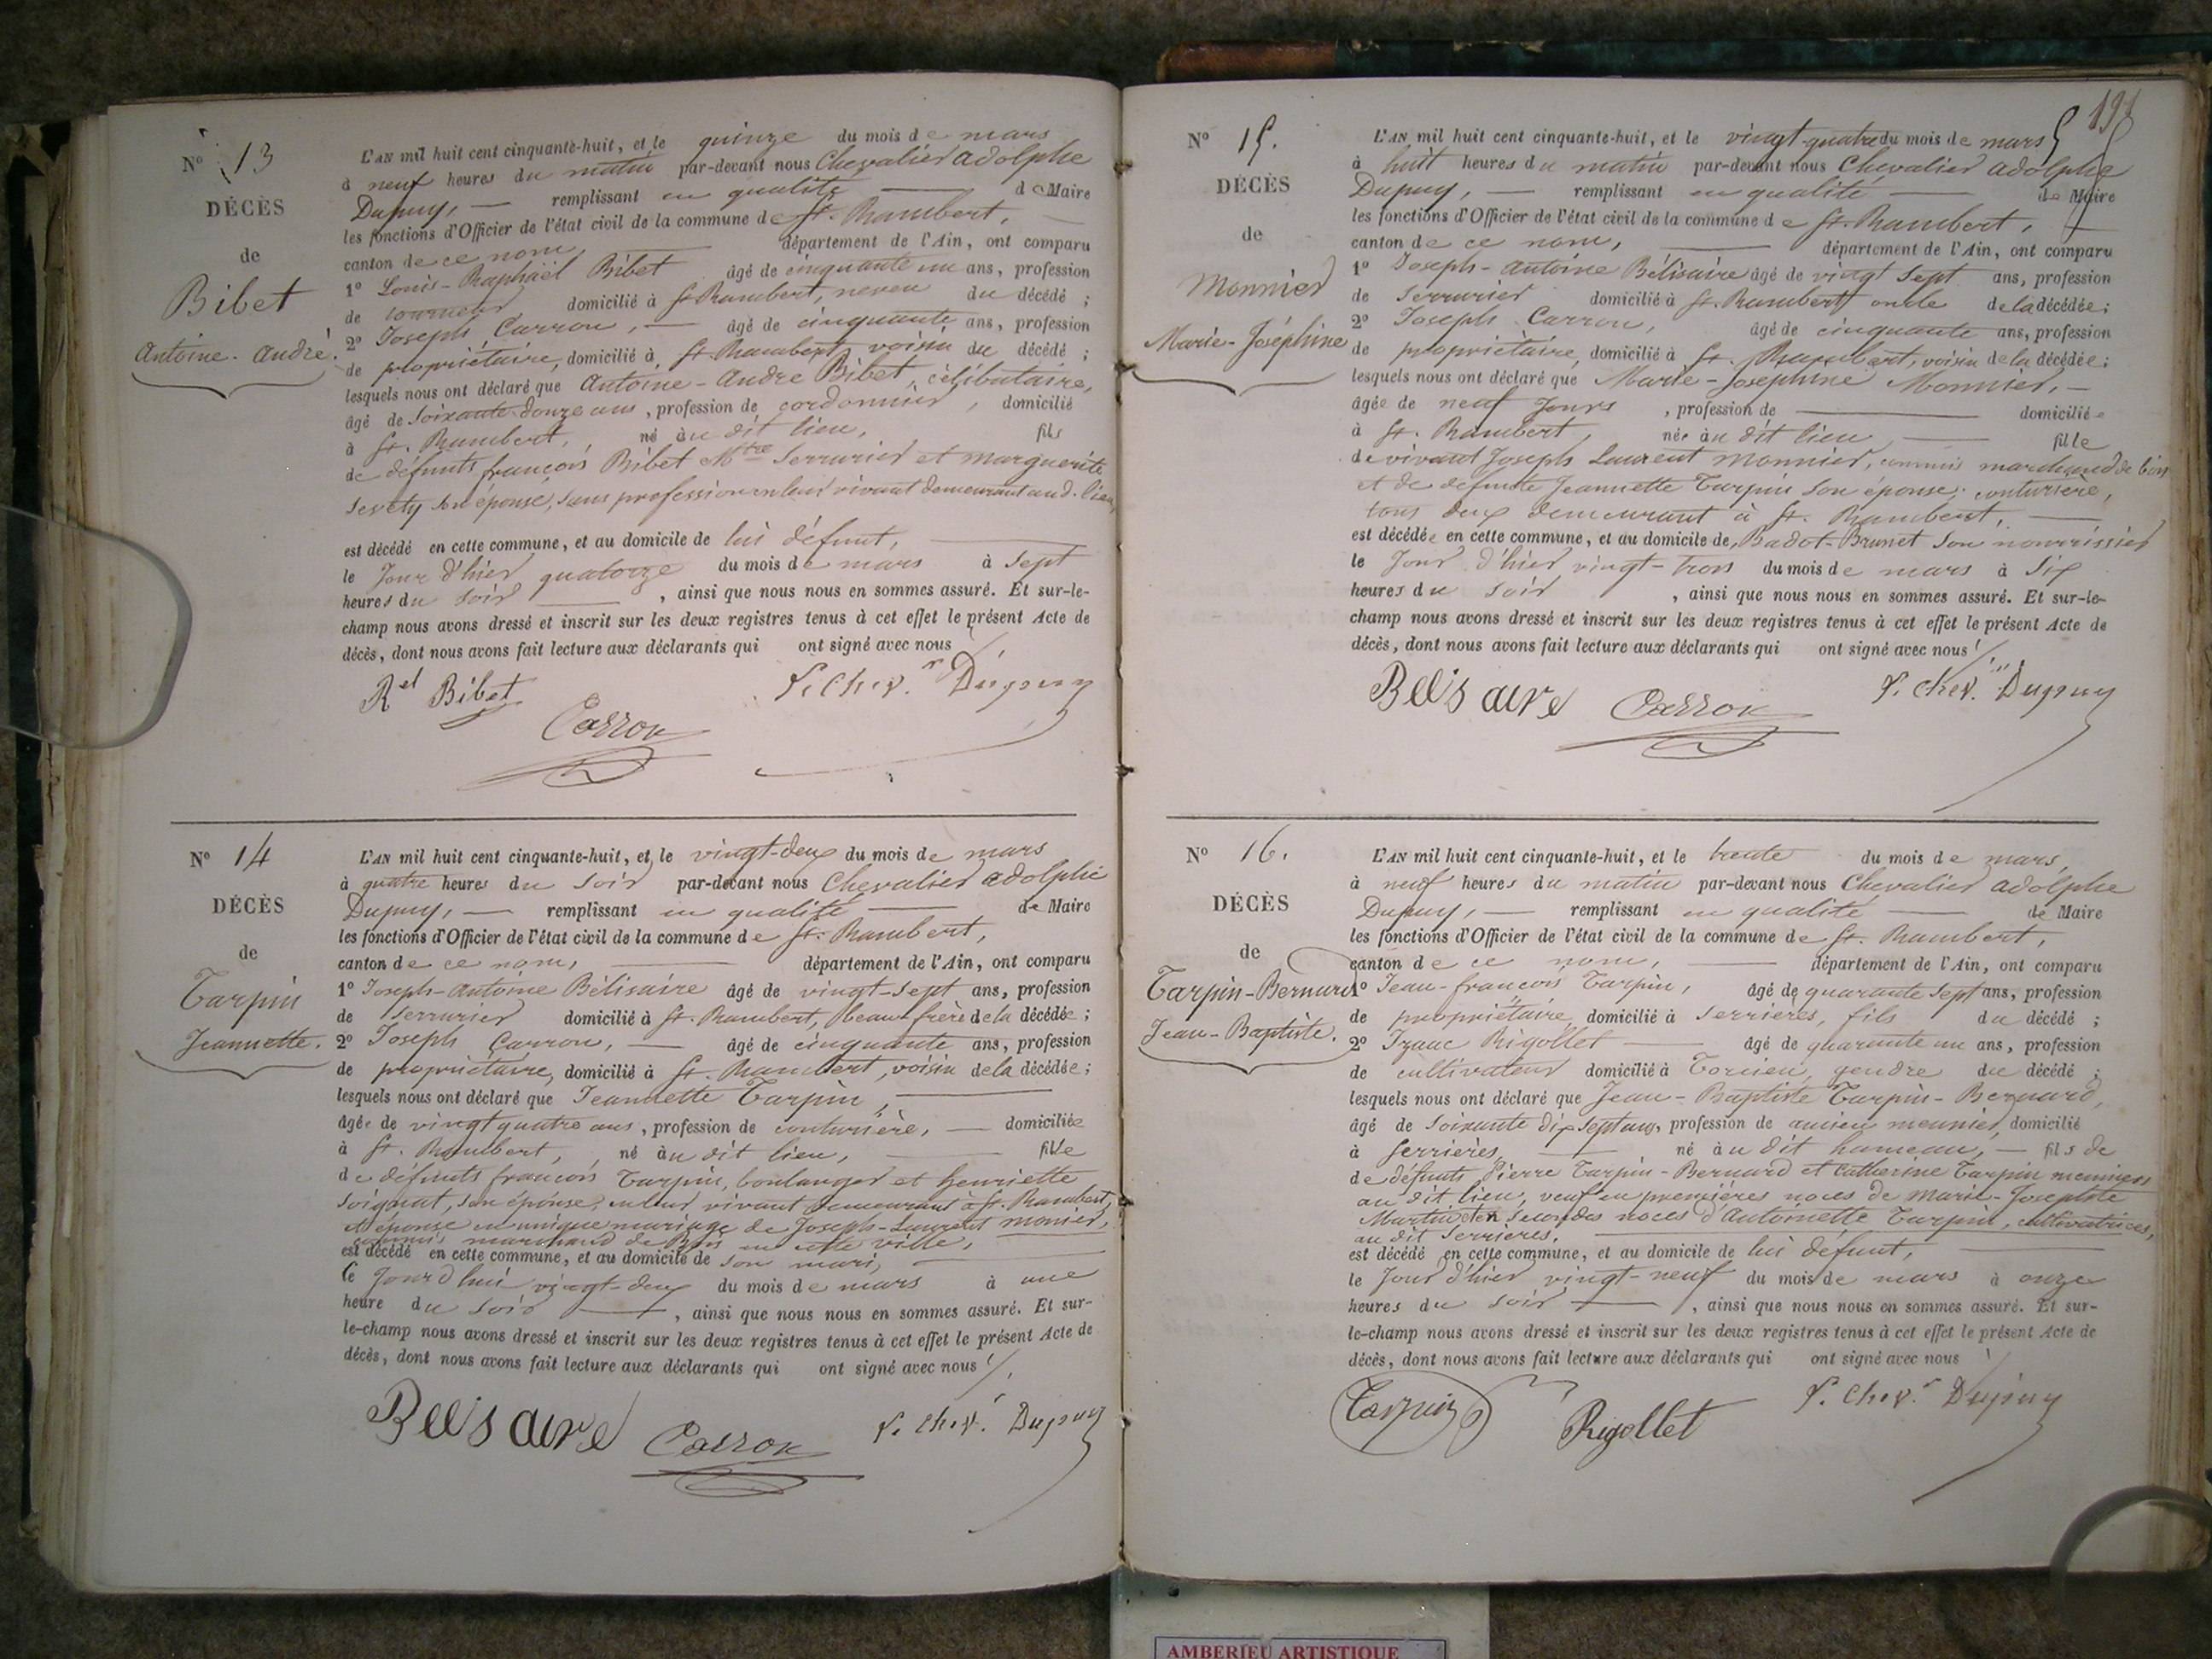 Nº 13
DÉCÈS
de
Bibet
Antoine-André.
L'AN mil huit cent cinquante-huit, et le quinze du mois de mars
à neuf heures du matin par-devant nous Chevalier adolphe
Dupuy, — remplissant en qualité — de Maire
les fonctions d'Officier de l'état civil de la commune de St. Rambert, —
canton de ce nom, — département de l'Ain, ont comparu
1º Louis-Raphaël Bibet âgé de cinquante un ans, profession
de tourneur, domicilié à St Rambert, neveu du décédé ;
2º Joseph Carron, — âgé de cinquante ans, profession
de propriétaire, domicilié à St. Rambert, voisin du décédé ;
lesquels nous ont déclaré que Antoine-André Bibet, célibataire,
âgé de soixante-douze ans, profession de cordonnier, domicilié
à St. Rambert, né au dit lieu, fils
de défunts françois Bibet Mtre Serrurier et marguerite
son épouse, sans profession en leur vivant demeurant aud. lieu,
est décédé en cette commune, et au domicile de lui défunt, —
le Jour d'hier quatorze du mois de mars à sept
heures du soir — , ainsi que nous nous en sommes assuré. Et sur-le-
champ nous avons dressé et inscrit sur les deux registres tenus à cet effet le présent Acte de
décès, dont nous avons fait lecture aux déclarants qui ont signé avec nous
Rel Bibet
Carron
Chev.r Dupuy
Nº 14
DÉCÈS
de
Tarpin
Jeannette.
L'AN mil huit cent cinquante-huit, et le vingt-deux du mois de mars
à quatre heures du soir par-devant nous Chevalier adolphe
Dupuy, — remplissant en qualité — de Maire
les fonctions d'Officier de l'état civil de la commune de St. Rambert,
canton de ce nom, — département de l'Ain, ont comparu
1º Joseph-antoine Bélisaire âgé de vingt-sept ans, profession
de serrurier domicilié à St. Rambert, beau frère de la décédée ;
2º Joseph Carron, — âgé de cinquante ans, profession
de propriétaire, domicilié à St. Rambert, voisin de la décédée ;
lesquels nous ont déclaré que Jeannette Tarpin, —
âgée de vingt quatre ans, profession de couturière, — domiciliée
à St. Rambert, né au dit lieu, — fille
de défunts françois Tarpin, boulanger et henriette
Soignat, son épouse, en leur vivant demeurant à St. Rambert,
et épouse en unique mariage de Joseph-Laurent monier,
commis marchand de Bois en cette ville,
est décédé en cette commune, et au domicile de son mari, —
le Jourd'hui vingt-deux du mois de mars à une
heure du soir — , ainsi que nous nous en sommes assuré. Et sur-
le-champ nous avons dressé et inscrit sur les deux registres tenus à cet effet le présent Acte de
décès, dont nous avons fait lecture aux déclarants qui ont signé avec nous
Belisaire
Carron
Chev.r Dupuy
Nº 15.
DÉCÈS
de
Monnier
Marie-Joséphine
L'AN mil huit cent cinquante-huit, et le vingt-quatre du mois de mars
à huit heures du matin par-devant nous Chevalier adolphe
Dupuy, — remplissant en qualité — de Maire
les fonctions d'Officier de l'état civil de la commune de St. Rambert,
canton de ce nom, — département de l'Ain, ont comparu
1º Joseph-antoine Bélisaire âgé de vingt sept ans, profession
de serrurier domicilié à St. Rambert oncle de la décédée ;
2º Joseph Carron, âgé de cinquante ans, profession
de propriétaire domicilié à St. Rambert, voisin de la décédée ;
lesquels nous ont déclaré que Marie-Joséphine Monnier, —
âgée de neuf Jours , profession de — domiciliée
à St. Rambert, née au dit lieu, — fille
de vivant Joseph Laurent monnier, commis marchand de bois
et de défunte Jeannette Tarpin son épouse, couturière,
tous deux demeurant à St. Rambert, —
est décédée en cette commune, et au domicile de Badot-Brunet son nourrissier
le Jour d'hier vingt-trois du mois de mars à six
heures du soir , ainsi que nous nous en sommes assuré. Et sur-le-
champ nous avons dressé et inscrit sur les deux registres tenus à cet effet le présent Acte de
décès, dont nous avons fait lecture aux déclarants qui ont signé avec nous
Belisaire
Carron
Chev.r Dupuy
Nº 16.
DÉCÈS
de
Tarpin-Bernard
Jean-Baptiste.
L'AN mil huit cent cinquante-huit, et le trente du mois de mars,
à neuf heures du matin par-devant nous Chevalier adolphe
Dupuy, — remplissant en qualité — de Maire
les fonctions d'Officier de l'état civil de la commune de St. Rambert,
canton de ce nom, — département de l'Ain, ont comparu
1º Jean-françois Tarpin, âgé de quarante sept ans, profession
de propriétaire domicilié à Serrières, fils du décédé ;
2º Izaac Rigollet — âgé de quarante un ans, profession
de cultivateur domicilié à Torcieu, gendre du décédé ;
lesquels nous ont déclaré que Jean-Baptiste Tarpin-Bernard,
âgé de soixante dix sept ans, profession de ancien meunier, domicilié
à Serrières, — né au dit hameau, — fils de
de défunts Pierre Tarpin-Bernard et Catherine Tarpin meuniers
au dit lieu, veuf en premières noces de Marie-Josephte
Martin et en secondes noces d'Antoinette Tarpin, cultivatrices,
au dit Serrières, —
est décédé en cette commune, et au domicile de lui défunt, —
le Jour d'hier vingt-neuf du mois de mars à onze
heures du soir — , ainsi que nous nous en sommes assuré. Et sur-
le-champ nous avons dressé et inscrit sur les deux registres tenus à cet effet le présent Acte de
décès, dont nous avons fait lecture aux déclarants qui ont signé avec nous
Tarpin
Rigollet
Chev.r Dupuy
AMBERIEU ARTISTIQUE